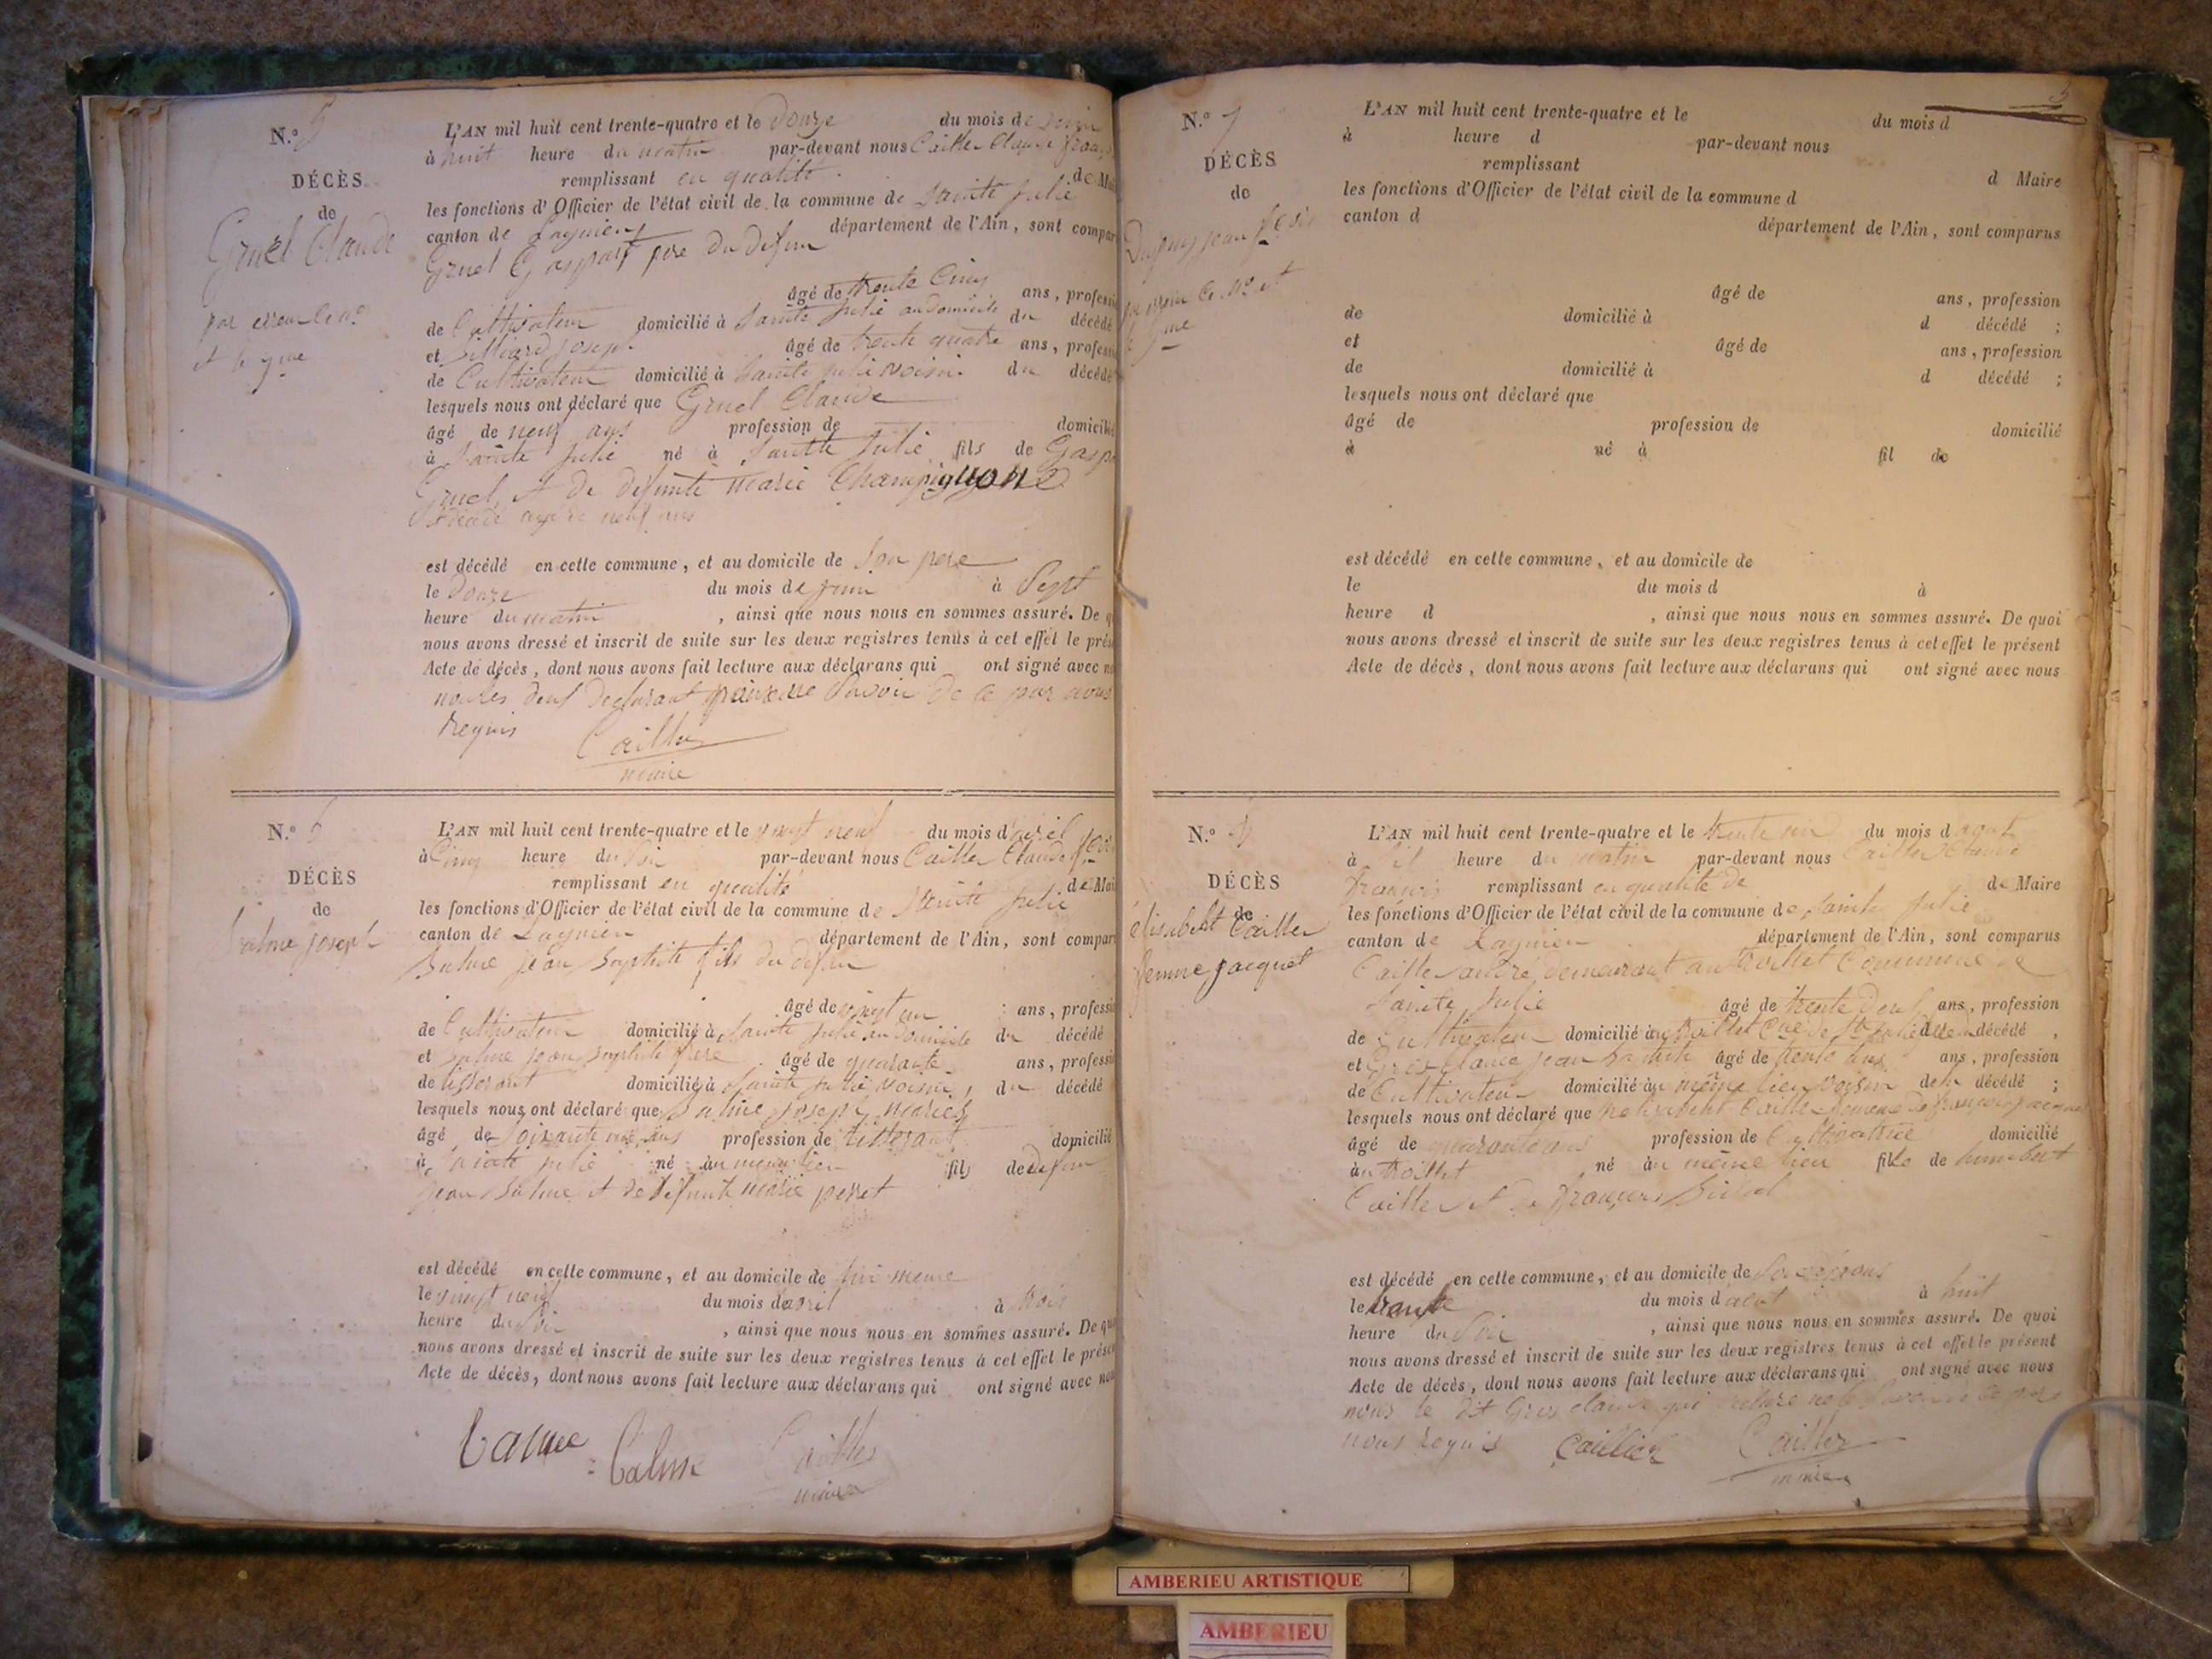 N.º 5
DÉCÈS
de
Gruel Claude
par erreur le nº
est le 7me
L'AN mil huit cent trente-quatre et le douze du mois de juin
à huit heure du matin par-devant nous Cailler Claude franç
remplissant en qualité de Mai
les fonctions d'Officier de l'état civil de la commune de Sainte Julie
canton de Lagnieu département de l'Ain, sont compar
Gruel Gaspart pere du défun
âgé de trente cinq ans, professi
de Cultivateur domicilié à Sainte Julie au domicile du décédé
et Billiard joseph âgé de trente quatre ans, professi
de Cultivateur domicilié à Sainte Julie voisin du décédé
lesquels nous ont déclaré que Gruel Claude
âgé de neuf ans profession de domicilié
à Sainte Julie né à Sainte Julie fils de Gaspa
Gruel et de defunte marie Champignon
décédé agé de neuf ans
est décédé en cette commune, et au domicile de son pere
le douze du mois de juin à Sept
heure du matin, ainsi que nous nous en sommes assuré. De q
nous avons dressé et inscrit de suite sur les deux registres tenus à cet effet le prés
Acte de décès, dont nous avons fait lecture aux déclarans qui ont signé avec n
non les deux declarant pour ne Savoir de ce par nous
requis
Cailler
maire
N.º 6
DÉCÈS
de
Balme joseph
L'AN mil huit cent trente-quatre et le vingt neuf du mois d'avril
à Cinq heure du Soir par-devant nous Cailler Claude fçois
remplissant en qualité de Mai
les fonctions d'Officier de l'état civil de la commune de Sainte Julie
canton de Lagnieu département de l'Ain, sont compar
Balme jean Baptiste fils du défun
âgé de vingt un ans, professi
de Cultivateur domicilié à Sainte Julie au domicile du décédé
et Balme jean Baptiste frere âgé de quarante ans, professi
de tisserant domicilié à Sainte Julie voisin, du décédé
lesquels nous ont déclaré que Balme joseph, marié
âgé de Soixante ans profession de tisserant domicilié
à Sainte Julie né au meme lieu fils de defun
jean Balme et de defunte marie perret
est décédé en cette commune, et au domicile de lui meme
le vingt neuf du mois d'avril à trois
heure du Soir, ainsi que nous nous en sommes assuré. De qu
nous avons dressé et inscrit de suite sur les deux registres tenus à cet effet le prése
Acte de décès, dont nous avons fait lecture aux déclarans qui ont signé avec nou
Balme Balme Cailler
maire
5
N.º 7
DÉCÈS
de
Dupuy jean fçois
par erreur le Nº est
le 5me
L'AN mil huit cent trente-quatre et le du mois d
à heure d par-devant nous
remplissant d Maire
les fonctions d'Officier de l'état civil de la commune d
canton d département de l'Ain, sont comparus
âgé de ans, profession
de domicilié à d décédé ;
et âgé de ans, profession
de domicilié à d décédé ;
lesquels nous ont déclaré que
âgé de profession de domicilié
à né à fil de
est décédé en cette commune, et au domicile de
le du mois d à
heure d, ainsi que nous nous en sommes assuré. De quoi
nous avons dressé et inscrit de suite sur les deux registres tenus à cet effet le présent
Acte de décès, dont nous avons fait lecture aux déclarans qui ont signé avec nous
N.º
DÉCÈS
de
élisabeht Cailler
femme jacquet
L'AN mil huit cent trente-quatre et le trente un du mois d aout
à heure du matin par-devant nous Cailler Claude
françois remplissant en qualité de de Maire
les fonctions d'Officier de l'état civil de la commune de Sainte Julie
canton de Lagnieu département de l'Ain, sont comparus
Cailler andré demeurant au trollet Commune de
Sainte Julie âgé de trente deux ans, profession
de Cultivateur domicilié au trollet Cne de Ste Julie de la décédé,
et Gros Claude jean Baptiste âgé de trente ans, profession
de Cultivateur domicilié au même lieu voisin de la décédé ;
lesquels nous ont déclaré que élisabeht Cailler femme de françois jacquet
âgé de quarante ans profession de Cultivatrice domicilié
au trollet né au même lieu fille de humbert
Cailler et de françoise
est décédé en cette commune, et au domicile de Son époux
le trente du mois d aout à huit
heure du Soir, ainsi que nous nous en sommes assuré. De quoi
nous avons dressé et inscrit de suite sur les deux registres tenus à cet effet le présent
Acte de décès, dont nous avons fait lecture aux déclarans qui ont signé avec nous
non le dit Gros claude qui declare ne le Savoir de par
nous requis Caillier Cailler
maire
AMBERIEU ARTISTIQUE
AMBERIEU